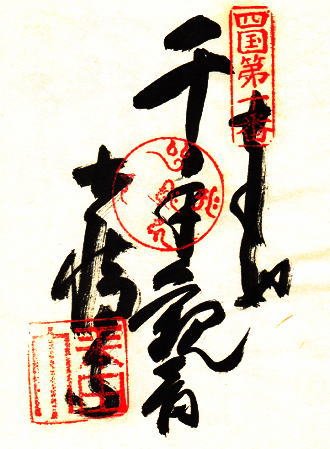 四国第十番
奉納
千手観音
切幡寺